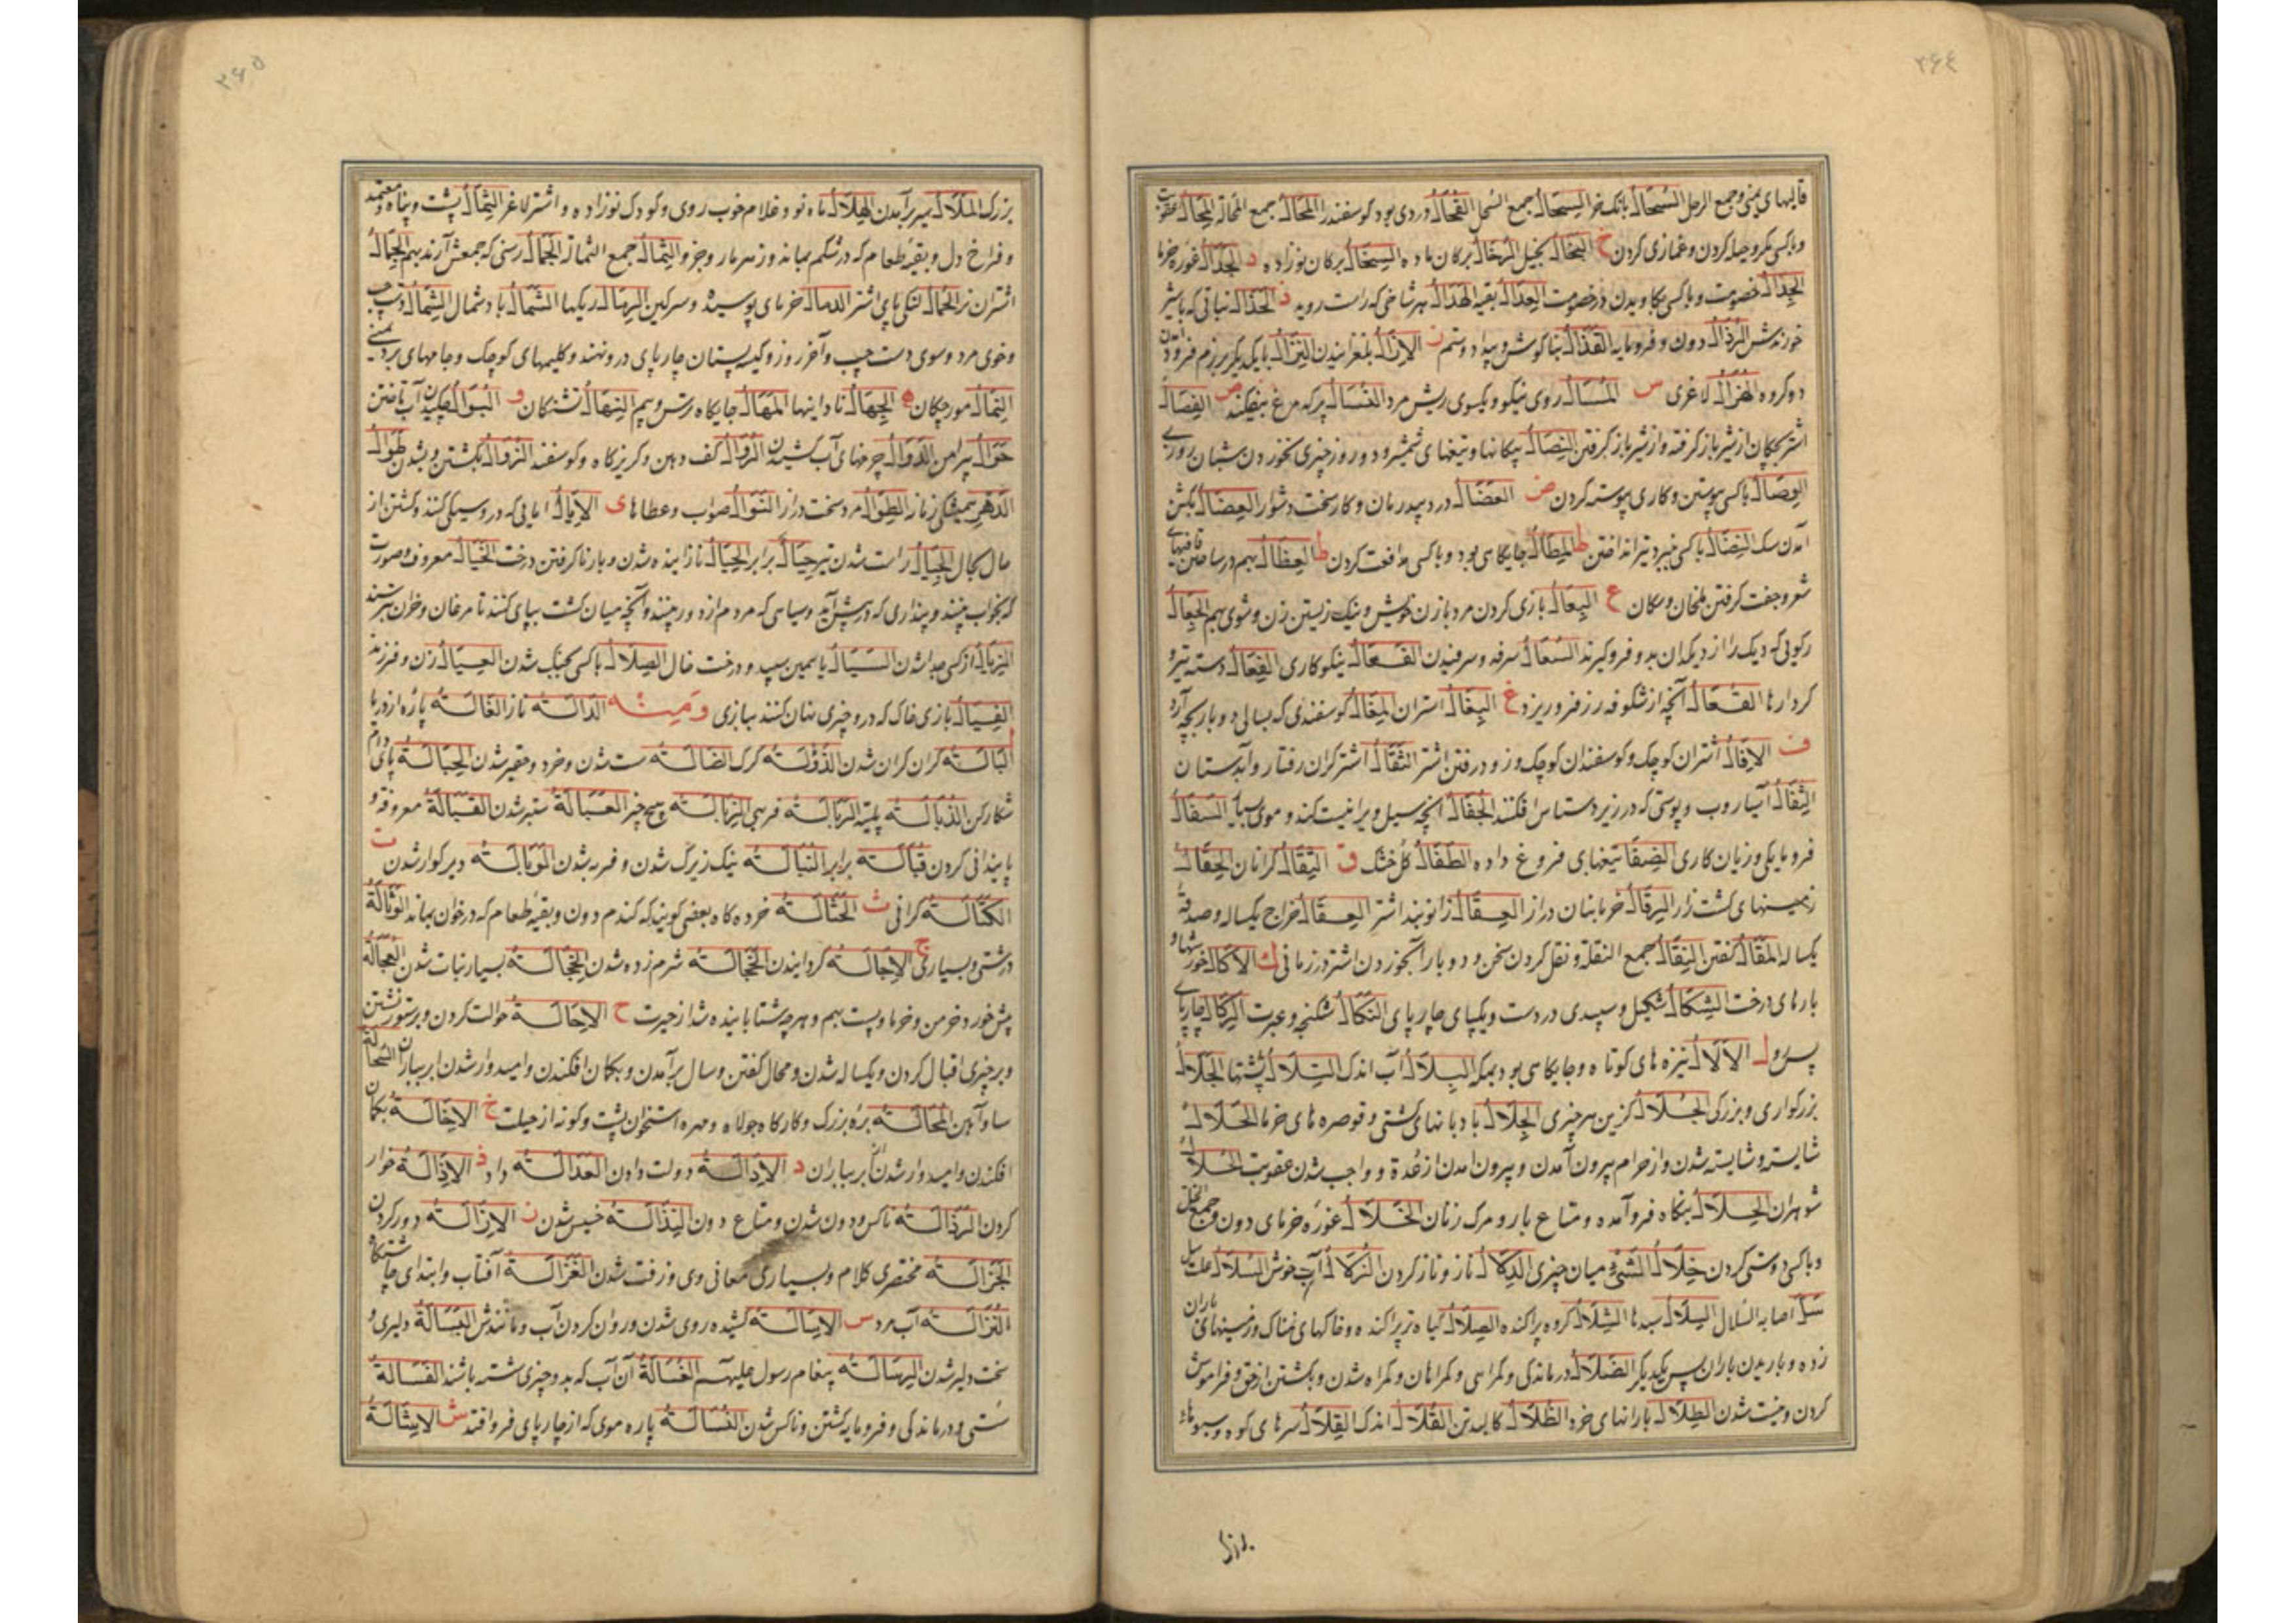 ۳۶۴
قالیهای یمنی و جمع الرجل السُّحَالُ بانگ خر السِّحَالُ جمع السحل الفُحَالُ المَحَالُ جمع المحالة المِحَالُ عقوبت
و با کسی مکر و حیله کردن و غمازی کردن خ البُخَّالُ بخیل الرِّخَالُ برکان ماده السِّخَالُ برکان نوزاده د الجَدَالُ غوره خرما
الجِدَالُ خصومت و با کسی بکاویدن در خصومت الهَدَالُ هر شاخی که راست روید ذ
خورندش الرُّذَالُ دون و فرومایه القَذَالُ بناگوش ز الاِزْلَالُ بلغزانیدن النِّزَالُ با یکدیگر برزم فرود آمدن
دو گروه الهُزَالُ لاغری س روی نیکو و یکسوی ریش مرد النُّسَالُ پر که مرغ بیفکند ص الفِصَالُ
اشتر بچگان از شیر باز گرفته و از شیر باز گرفتن النِّصَالُ پیکانها و تیغهای شمشیر و دو روز چیزی نخوردن
الوِصَالُ با کسی پیوستن و کاری پیوسته کردن ض العُضَالُ درد بیدرمان و کار سخت دشوار
النِّضَالُ با کسی تیر انداختن ط جایگاهی بود و با کسی مدافعت کردن ظ العِظَالُ
شعر و جفت گرفتن ملخان و سگان ع البِعَالُ بازی کردن مرد با زن خویش و نیک زیستن زن و شوی بهم الجِعَالُ
رکویی که دیک را از دیکدان بدو فرو گیرند السُّعَالُ سرفه و سرفیدن الفَعَالُ نیکوکاری الفِعَالُ دسته تبر و
کردارها القُعَالُ آنچه از شکوفه رز فرو ریزد غ البِغَالُ استران المِغَالُ گوسفندی که بسالی دو بار بچه آرد
ف الاِفَالُ اشتران کوچک و گوسفندان کوچک الثَّقَالُ اشتر گران رفتار و آبدستان
الثِّفَالُ آسیا روب و پوستی که در زیر دستاس افکنند الجُفَالُ آنچه سیل ویرا نیست کند و موی بسیار السَّفَالُ
فرومایگی و زیان کاری تیغهای فروغ داده الطَّفَالُ گل خشک ق الثِّقَالُ گرانان الحِقَالُ
زمینهای کشت زار الرِّقَالُ خرما بنان دراز العِقَالُ زانوبند اشتر العِقَالُ خراج یکساله و صدقه
یکساله المَقَالُ گفتن النِّقَالُ جمع النقلة و نقل کردن سخن و دو بار آب خوردن اشتر در زمانی ك الاُکَالُ خورشها و
بارهای درخت الشِّکَالُ شکیل و سپیدی در دست و یکپای چارپای النَّکَالُ شکنجه و عبرت الرِّکَالُ چارپای
ل الاَلَالُ نیزه های کوتاه و جایگاهی بود بمکه البِلَالُ آب اندک التِّلَالُ پشتها الجَلَالُ
بزرگواری و بزرگی الجُلَالُ گزین هر چیزی الجِلَالُ بادبانهای کشتی و قوصره های خرما الحَلَالُ
شایسته و شایسته شدن و از حرام بیرون آمدن و بیرون آمدن از عدة و واجب شدن عقوبت الحُلَّالُ
شوهران الحِلَالُ بنگاه فرو آمده و متاع بار و مرکب زنان الخَلَالُ غوره خرمای دون و جمع الخل
و با کسی دوستی کردن خِلَالُ الشَّیْءِ میان چیزی الدَّلَالُ ناز و ناز کردن الزُّلَالُ آب خوش السُّلَالُ علت سل
سُلَّ اصابه السلال السِّلَالُ سبدها الشِّلَالُ گروه پراکنده الصِّلَالُ گیاه تر پراکنده و خاکهای نمناک و زمینهای باران
زده و باریدن باران پس یکدیگر الضَّلَالُ درماندگی و گمراهی و گمراهان و گمراه شدن و بگشتن از حق و فراموش
کردن و نیست شدن الطِّلَالُ بارانهای خرد الظِّلَالُ کالبد تن القُلَالُ اندک القِلَالُ سرهای کوه و سبوهای
بزرک
۳۶۵
بزرک المَلَالُ سیر برآمدن الهِلَالُ ماه نو و غلام خوب روی و کودک نوزاده و اشتر لاغر الثِّمَالُ پشت و پناه و معتمد
و فراخ دل و بقیه طعام که در شکم بماند و زهر مار و جز و الثِّمَالُ جمع الثمالة الجُمَّالُ رسنی که جمعش آرند بهم الجِمَالُ
اشتران نر لنگی پای اشتر خرمای پوسیده و سرگین الرِّمَالُ ریکها الشَّمَالُ باد شمال الشِّمَالُ دست چپ
و خوی مرد و سوی دست چپ و آخر روز و کیسه پستان چارپای درو نهند و گلیمهای کوچک و جامهای برد یمنی
النِّمَالُ مورچگان ه الجُهَّالُ نادانیها النِّهَالُ تشنگان و
حَوَالُ پیرامن الدَّوَالُ چرخهای آب کشیدن الرُّوَالُ کف دهن الزَّوَالُ بگشتن و بشدن طَوَالُ
الدَّهْرِ همیشگی زمانه الطُّوَالُ مرد سخت دراز النَّوَالُ صواب و عطاها ی
مال راست شدن حِیَالُ برابر الحِیَالُ نازاینده شدن و بار ناگرفتن درخت الخَیَالُ معروف و صورت
که بخواب بینند و پنداری که در پیش آید و سیاهی که مردم از دور بینند و آنچه میان کشت بپای کنند تا مرغان و خران بترسند
الزِّیَالُ از کسی جدا شدن السَّیَالُ یاسمین سپید و درخت خال با کسی بجنگ شدن العِیَالُ زن و فرزند
الفِیَالُ بازی خاک که درو چیزی نهان کنند ببازی وَمِنْهُ الدَّالَةُ ناز
گران گران شدن گرگ سست شدن و خرد و حقیر شدن الحِبَالَةُ پای دام
شکارکن الذُّبَالَةُ پلیته الرَّبَالَةُ فربهی الزِّبَالَةُ هیچ چیز العَبَالَةُ ستبر شدن القَبَالَةُ معروفة و
پابندانی کردن قُبَالَةَ برابر النَّبَالَةُ نیک زیرک شدن و فربه شدن الوَبَالَةُ دیر گوار شدن ت
الکَتَالَةُ گرانی ث الحُثَالَةُ خرده کاه بعضی گویند که گندم دون و بقیه طعام که در خوان بماند الوَثَالَةُ
درشتی و بسیاری ج الاِجَالَةُ گردانیدن الخَجَالَةُ شرم زده شدن بسیار نبات شدن العُجَالَةُ
پیش خورد ح الاِحَالَةُ حوالت کردن و بر ستور نشستن
و بر چیزی اقبال کردن و یکساله شدن و محال گفتن و سال برآمدن و بگمان افکندن و امیدوار شدن ابر بباران السُّحَالَةُ
ساو آهن المَحَالَةُ بره بزرگ و کارگاه جولاه و مهره استخوان پشت و گونه از حیلت خ الاِخَالَةُ بگمان
افکندن و امیدوار شدن ابر بباران د الاِدَالَةُ دولت دادن العَدَالَةُ داد ذ الاِذَالَةُ خوار
کردن الرَّذَالَةُ ناکس و دون شدن و متاع دون النَّذَالَةُ خسیس شدن ز الاِزَالَةُ دور کردن
الجَزَالَةُ مختصری کلام و بسیاری معانی وی و زفت شدن الغَزَالَةُ آفتاب و ابتدای چاشتگاه
النُّزَالَةُ آب مرد س الاِسَالَةُ کشیده روی شدن و روان کردن آب و مانندش البَسَالَةُ دلیری و
سخت دلیر شدن الرِّسَالَةُ پیغام رسول علیهم الغُسَالَةُ آن آب که بدو چیزی شسته باشند الفَسَالَةُ
سستی و درماندگی و فرومایه گشتن و ناکس شدن النُّسَالَةُ پاره موی که از چارپای فرو افتد ش الاِشَالَةُ